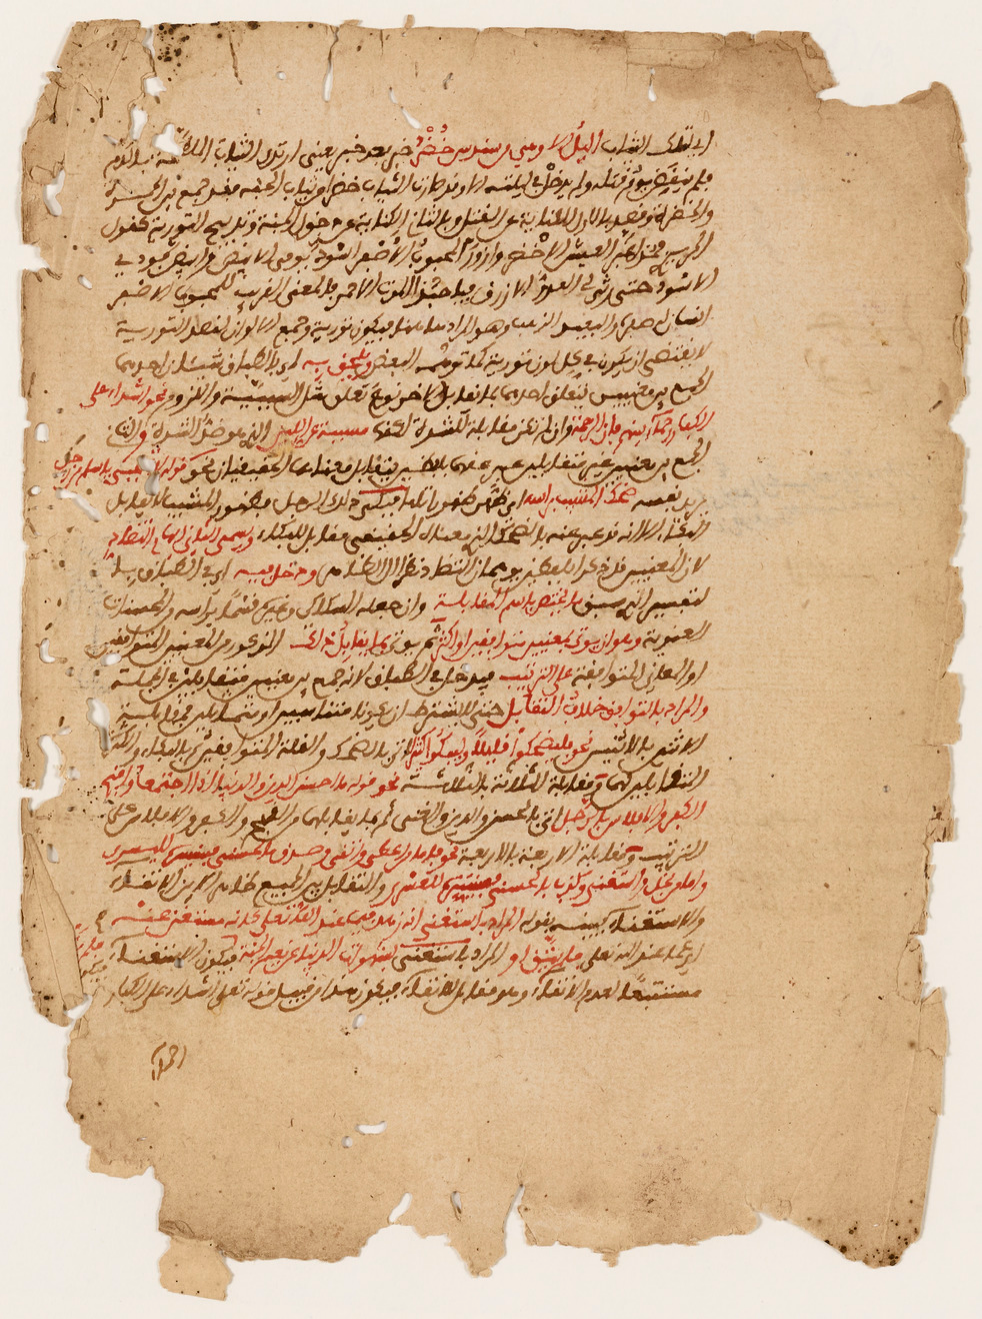 الليل الا وهي من سندس خضر خبر بعد خبر يعني ارتدى الثياب
فلم ينقض يوم قتله ولم يدخل في ليلته الا وقد صارت الثياب خضرا من ثياب الجنة فقد جمع بين الحمرة
والخضرة وقصد بالاول الكناية عن القتل وبالثاني الكناية عن دخول الجنة وتدبيج التورية كقول
الحريري فمذ اغبر العيش الاخضر وازور المحبوب الاصفر اسود يومي الابيض وابيض فودي
الاسود حتى رثى لي العدو الازرق فيا حبذا الموت الاحمر فالمعنى القريب للمحبوب الاصفر
انسان له صفرة والبعيد الذهب وهو المراد هاهنا فيكون تورية وجمع الالوان لقصد التورية
لا يقتضي ان يكون في كل لون تورية كما توهمه البعض ويلحق به اي بالطباق شيئان احدهما
الجمع بين معنيين يتعلق احدهما بما يقابل الاخر نوع تعلق مثل السببية واللزوم نحو اشداء على
الكفار رحماء بينهم فان الرحمة وان لم تكن مقابلة للشدة لكنها مسببة عن اللين الذي هو ضد الشدة والثاني
الجمع بين معنيين غير متقابلين عبر عنهما بلفظين يتقابل معناهما الحقيقيان نحو قوله لا تعجبي يا سلم من رجل
يريد نفسه ضحك المشيب براسه اي ظهر ظهورا تاما فبكى ذلك الرجل فظهور المشيب لا يقابل
البكاء الا انه قد عبر عنه بالضحك الذي معناه الحقيقي مقابل للبكاء ويسمى الثاني ايهام التضاد
لان المعنيين قد ذكرا بلفظين يوهمان التضاد نظرا الى الظاهر ودخل فيه اي في الطباق
التفسير الذي سبق ما يختص باسم المقابلة وان جعله السكاكي وغيره قسما براسه من المحسنات
المعنوية وهو ان يوتى بمعنيين متوافقين او اكثر ثم يوتى بما يقابل ذلك المذكور من المعنيين المتوافقين
او المعاني المتوافقة على الترتيب فيدخل في الطباق لانه جمع بين معنيين متقابلين في الجملة
والمراد بالتوافق خلاف التقابل حتى لا يشترط ان يكونا متناسبين او متماثلين فمقابلة
الاثنين بالاثنين نحو فليضحكوا قليلا وليبكوا كثيرا اتى بالضحك والقلة المتوافقين ثم بالبكاء والكثرة
المتقابلين لهما ومقابلة الثلاثة بالثلاثة نحو قوله ما احسن الدين والدنيا اذا اجتمعا واقبح
الكفر والافلاس بالرجل اتى بالحسن والدين والغنى ثم بما يقابلها من القبح والكفر والافلاس على
الترتيب ومقابلة الاربعة بالاربعة نحو فاما من اعطى واتقى وصدق بالحسنى فسنيسره لليسرى
واما من بخل واستغنى وكذب بالحسنى فسنيسره للعسرى والتقابل بين الجميع ظاهر الا بين الاتقاء
والاستغناء فبينه بقوله المراد باستغنى انه زهد فيما عند الله تعلى كانه مستغن عنه
اي عما عند الله تعلى فلم يتق او المراد باستغنى بشهوات الدنيا عن نعيم الجنة فيكون الاستغناء
مستتبعا لعدم الاتقاء وهو مقابل للاتقاء فيكون هذا من قبيل قوله تعلى اشداء على الكفار